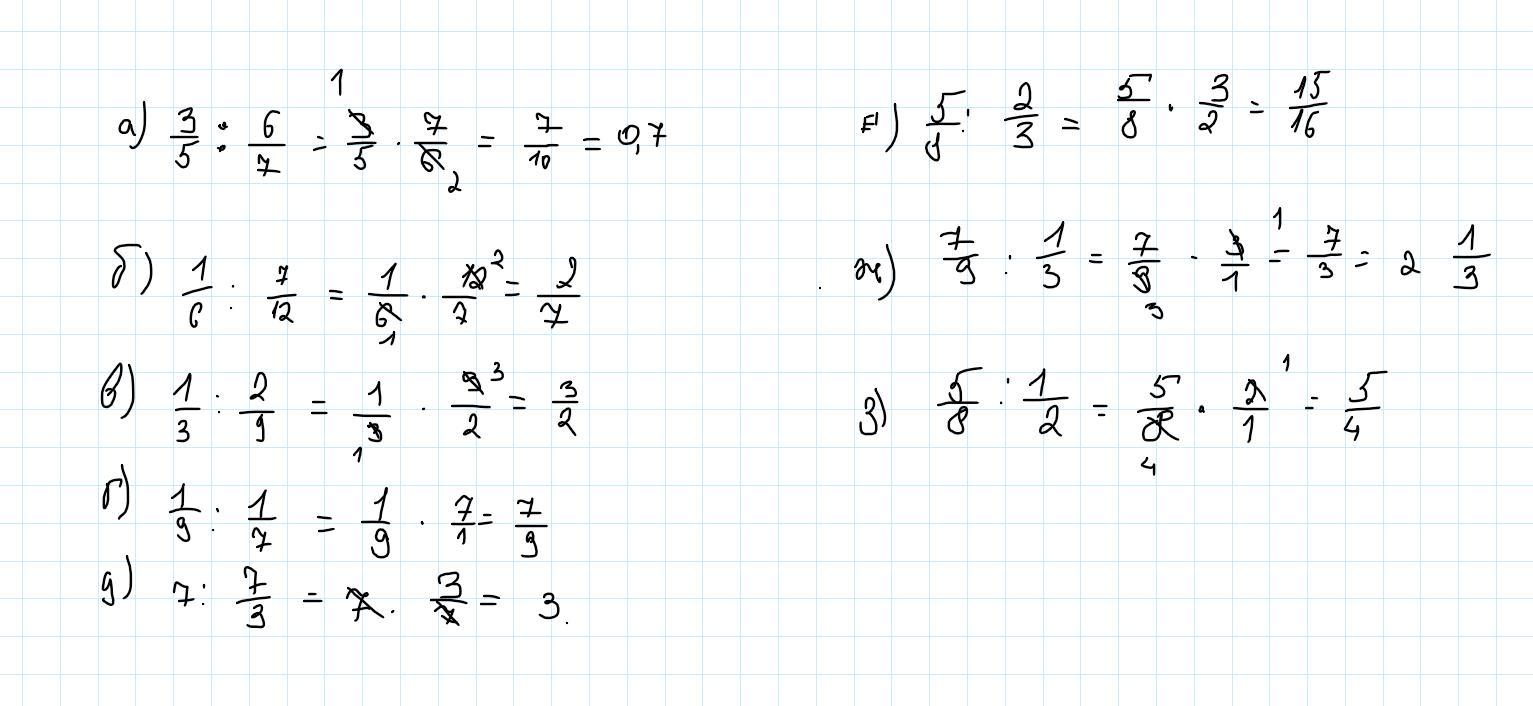 а) 3/5 : 6/7 = 3/5 · 7/6 = 7/10 = 0,7
б) 1/6 : 7/12 = 1/6 · 12/7 = 2/7
в) 1/3 : 2/9 = 1/3 · 9/2 = 3/2
г) 1/9 : 1/7 = 1/9 · 7/1 = 7/9
д) 7 : 7/3 = 7 · 3/7 = 3.
е) 5/8 : 2/3 = 5/8 · 3/2 = 15/16
ж) 7/9 : 1/3 = 7/9 · 3/1 = 7/3 = 2 1/3
з) 5/8 : 1/2 = 5/8 · 2/1 = 5/4